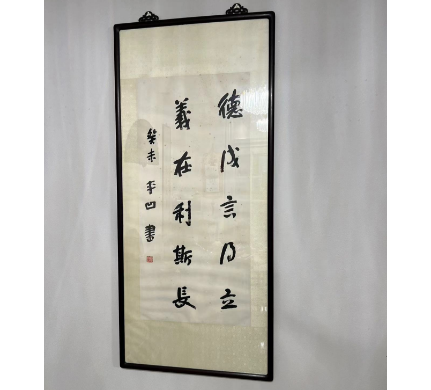 德成言乃立
義在利斯長
癸未 平凹 書